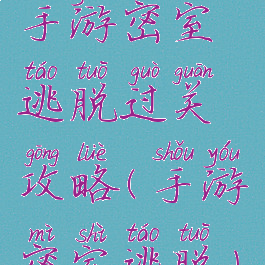 手游密室
táo tuō guò guān
逃脱过关
gōng lüè shǒu yóu
攻略(手游
mì shì táo tuō
密室逃脱)